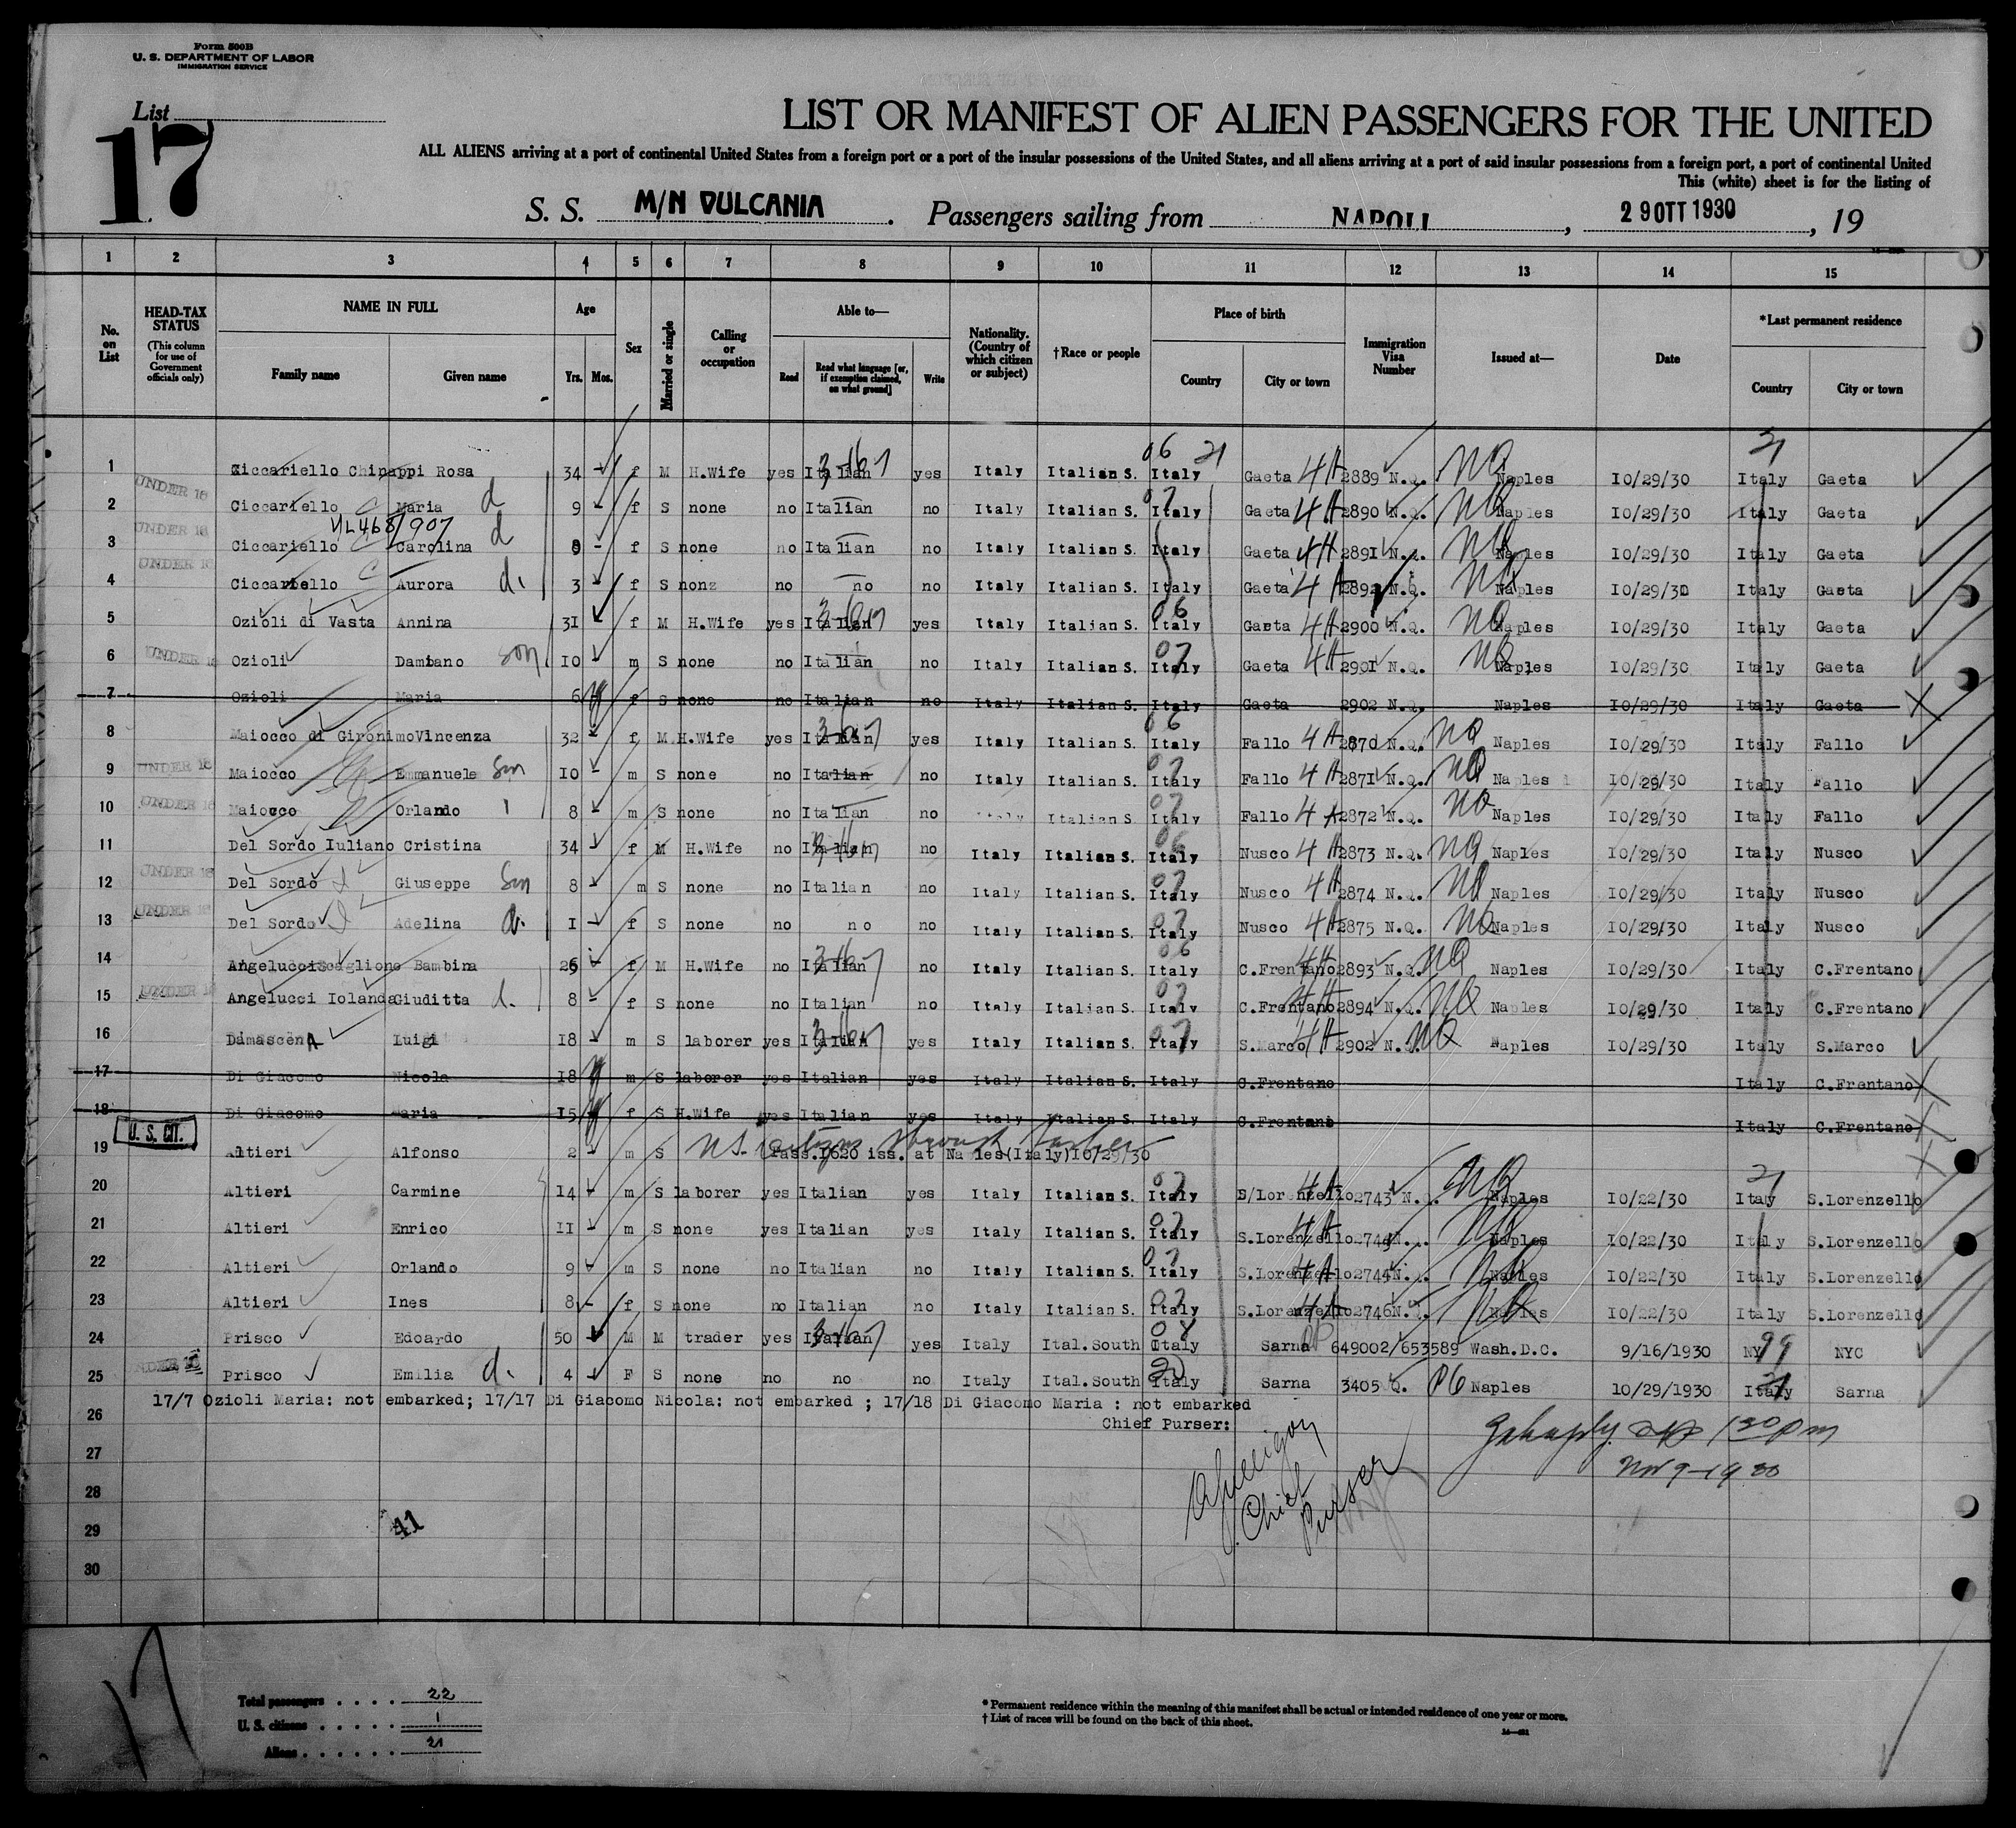 Form 500B
U. S. DEPARTMENT OF LABOR
IMMIGRATION SERVICE
List
17
LIST OR MANIFEST OF ALIEN PASSENGERS FOR THE UNITED
ALL ALIENS arriving at a port of continental United States from a foreign port or a port of the insular possessions of the United States, and all aliens arriving at a port of said insular possessions from a foreign port, a port of continental United
This (white) sheet is for the listing of
S. S. M/N VULCANIA. Passengers sailing from NAPOLI, 29 OTT 1930, 19
1 2 3 4 5 6 7 8 9 10 11 12 13 14 15
No. on List
HEAD-TAX STATUS (This column for use of Government officials only)
NAME IN FULL
Family name Given name
Age
Yrs. Mos.
Sex
Married or single
Calling or occupation
Able to—
Read Read what language [or, if exemption claimed, on what ground] Write
Nationality. (Country of which citizen or subject)
†Race or people
Place of birth
Country City or town
Immigration Visa Number
Issued at—
Date
*Last permanent residence
Country City or town
06 21 21
1 Ciccariello Chinappi Rosa 34 - f M H.Wife yes Italian yes Italy Italian S. Italy Gaeta 4A 2889 N.Q. NQ Naples 10/29/30 Italy Gaeta
2 UNDER 16 Ciccariello C Maria d 9 - f S none no Italian no Italy Italian S. 07 Italy Gaeta 4A 2890 N.Q. NQ Naples 10/29/30 Italy Gaeta
3 UNDER 16 Ciccariello C Carolina d 8 - f S none no Italian no Italy Italian S. Italy Gaeta 4A 2891 N.Q. NQ Naples 10/29/30 Italy Gaeta
4 UNDER 16 Ciccariello C Aurora d. 3 - f S none no no no Italy Italian S. Italy Gaeta 4A 2892 N.Q. NQ Naples 10/29/30 Italy Gaeta
5 Ozioli di Vasta Annina 31 f M H.Wife yes Italian yes Italy Italian S. 06 Italy Gaeta 4A 2900 N.Q. NQ Naples 10/29/30 Italy Gaeta
6 UNDER 16 Ozioli Damiano son 10 - m S none no Italian no Italy Italian S. 07 Italy Gaeta 4A 2901 N.Q. NQ Naples 10/29/30 Italy Gaeta
7 Ozioli Maria 6 f S none no Italian no Italy Italian S. Italy Gaeta 2902 N.Q. Naples 10/29/30 Italy Gaeta X
8 Maiocco di Gironimo Vincenza 32 - f M H.Wife yes Italian yes Italy Italian S. 06 Italy Fallo 4A 2870 N.Q. NQ Naples 10/29/30 Italy Fallo
9 UNDER 16 Maiocco Emmanuele Son 10 - m S none no Italian no Italy Italian S. 07 Italy Fallo 4A 2871 N.Q. NQ Naples 10/29/30 Italy Fallo
10 UNDER 16 Maiocco Orlando 8 - m S none no Italian no Italy Italian S. 07 Italy Fallo 4A 2872 N.Q. NQ Naples 10/29/30 Italy Fallo
11 Del Sordo Iuliano Cristina 34 f M H.Wife no Italian no Italy Italian S. 06 Italy Nusco 4A 2873 N.Q. NQ Naples 10/29/30 Italy Nusco
12 UNDER 16 Del Sordo Giuseppe Son 8 - m S none no Italian no Italy Italian S. 07 Italy Nusco 4A 2874 N.Q. NQ Naples 10/29/30 Italy Nusco
13 UNDER 16 Del Sordo Adelina d. 1 - f S none no no no Italy Italian S. 07 Italy Nusco 4A 2875 N.Q. NQ Naples 10/29/30 Italy Nusco
14 Angelucci Scaglione Bambina 26 - f M H.Wife no Italian no Italy Italian S. 06 Italy C.Frentano 4A 2893 N.Q. NQ Naples 10/29/30 Italy C.Frentano
15 UNDER 16 Angelucci Iolanda Giuditta d. 8 - f S none no Italian no Italy Italian S. 07 Italy C.Frentano 4A 2894 N.Q. NQ Naples 10/29/30 Italy C.Frentano
16 DamascenA Luigi 18 - m S laborer yes Italian yes Italy Italian S. 07 Italy S.Marco 4A 2902 N.Q. NQ Naples 10/29/30 Italy S.Marco
17 Di Giacomo Nicola 18 m S laborer yes Italian yes Italy Italian S. Italy C.Frentano Italy C.Frentano X
18 Di Giacomo Maria 15 f S H.Wife yes Italian yes Italy Italian S. Italy C.Frentano Italy C.Frentano X
U. S. CIT.
19 Altieri Alfonso 2 - m S U.S. citizen through father Pass.1620 iss. at Naples(Italy)10/29/30 X
20 Altieri Carmine 14 - m S laborer yes Italian yes Italy Italian S. 07 Italy S/Lorenzello 4A 2743 N.Q. NQ Naples 10/22/30 21 Italy S.Lorenzello
21 Altieri Enrico 11 - m S none yes Italian yes Italy Italian S. 07 Italy S.Lorenzello 4A NQ Naples 10/22/30 Italy S.Lorenzello
22 Altieri Orlando 9 - m S none no Italian no Italy Italian S. 07 Italy S.Lorenzello 4A 2744 NQ Naples 10/22/30 Italy S.Lorenzello
23 Altieri Ines 8 - f S none no Italian no Italy Italian S. 07 Italy S.Lorenzello 4A 2746 NQ Naples 10/22/30 Italy S.Lorenzello
24 Prisco Edoardo 50 M M trader yes Italian yes Italy Ital.South 08 Italy Sarna 649002/653589 Wash.D.C. 9/16/1930 NY 99 NYC
25 UNDER 16 Prisco Emilia d. 4 F S none no no no Italy Ital.South 20 Italy Sarna 3405 Q. P6 Naples 10/29/1930 Italy 21 Sarna
17/7 Ozioli Maria: not embarked; 17/17 Di Giacomo Nicola: not embarked ; 17/18 Di Giacomo Maria : not embarked
26 Chief Purser:
Chief Purser
130 pm
Nov 9-1930
27
28
29 41
30
17
Total passengers . . . . 22
U. S. citizens . . . . . 1
Aliens . . . . . . 21
* Permanent residence within the meaning of this manifest shall be actual or intended residence of one year or more.
† List of races will be found on the back of this sheet.